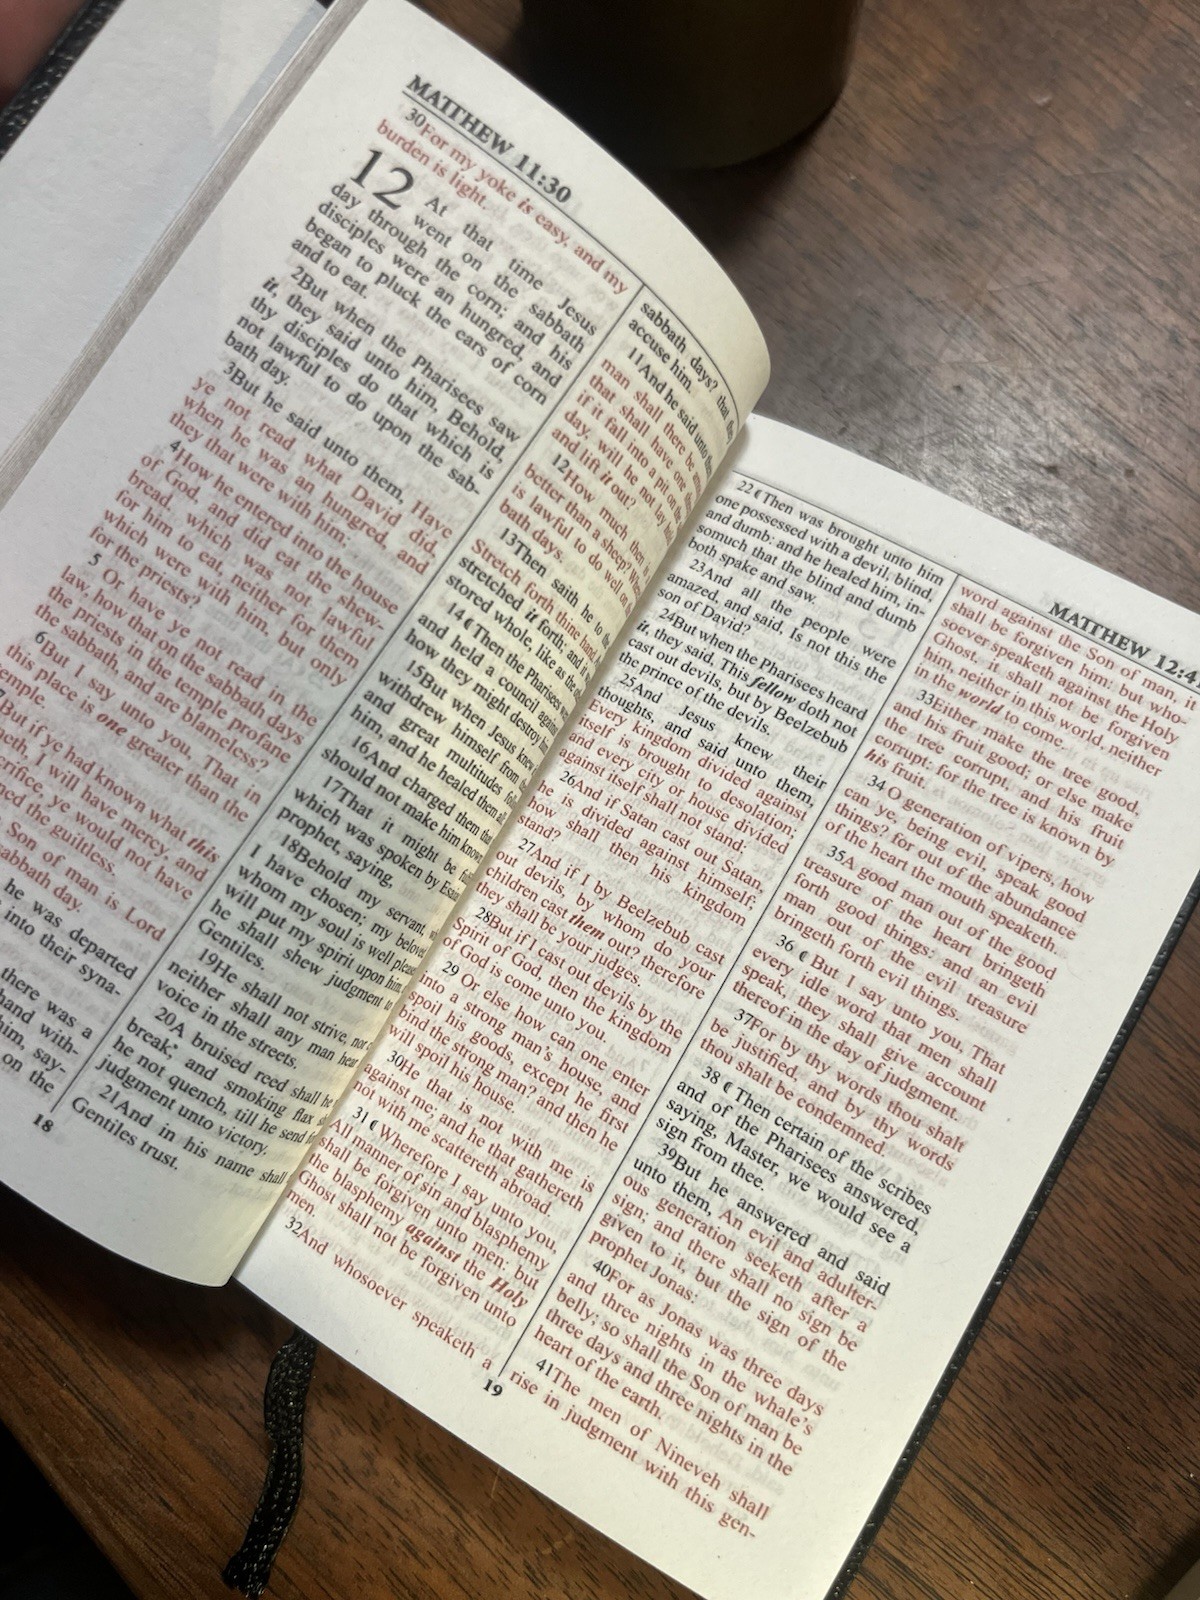 MATTHEW 11:30
30For my yoke is easy, and my
burden is light.
12 At that time Jesus
went on the sabbath
day through the corn; and his
disciples were an hungred, and
began to pluck the ears of corn
and to eat.
2But when the Pharisees saw
it, they said unto him, Behold,
thy disciples do that which is
not lawful to do upon the sab-
bath day.
3But he said unto them, Have
ye not read what David did,
when he was an hungred, and
they that were with him;
4How he entered into the house
of God, and did eat the shew-
bread, which was not lawful
for him to eat, neither for them
which were with him, but only
for the priests?
5 Or have ye not read in the
law, how that on the sabbath days
the priests in the temple profane
the sabbath, and are blameless?
6But I say unto you, That in
this place is one greater than the
temple.
7But if ye had known what this
meth, I will have mercy, and
crifice, ye would not have
ned the guiltless.
Son of man is Lord
abbath day.
he was departed
into their syna-
there was a
hand with-
him, say-
on the
18
sabbath days? that
accuse him.
11And he said unto
man shall there be
that shall have one
if it fall into a pit on the
day, will he not lay
and lift it out?
12How much then is
better than a sheep?
is lawful to do well on
bath days.
13Then saith he to the
Stretch forth thine hand.
stretched it forth; and it
stored whole, like as the
14 ( Then the Pharisees
and held a council against
how they might destroy him.
15But when Jesus knew
withdrew himself from
and great multitudes
him, and he healed them all
16And charged them that
should not make him known
17That it might be
which was spoken by
prophet, saying,
18Behold my servant,
I have chosen; my beloved,
whom my soul is well
will put my spirit upon him,
he shall shew judgment
Gentiles.
19He shall not strive, nor
neither shall any man hear
voice in the streets.
20A bruised reed shall he
break, and smoking flax
he not quench, till he send
judgment unto victory.
21And in his name shall
Gentiles trust.
MATTHEW 12:4
22 ( Then was brought unto him
one possessed with a devil, blind,
and dumb: and he healed him, in-
somuch that the blind and dumb
both spake and saw.
23And all the people were
amazed, and said, Is not this the
son of David?
24But when the Pharisees heard
it, they said, This fellow doth not
cast out devils, but by Beelzebub
the prince of the devils.
25And Jesus knew their
thoughts, and said unto them,
Every kingdom divided against
itself is brought to desolation;
and every city or house divided
against itself shall not stand:
26And if Satan cast out Satan,
he is divided against himself;
how shall then his kingdom
stand?
27And if I by Beelzebub cast
out devils, by whom do your
children cast them out? therefore
they shall be your judges.
28But if I cast out devils by the
Spirit of God, then the kingdom
of God is come unto you.
29 Or else how can one enter
into a strong man's house, and
spoil his goods, except he first
bind the strong man? and then he
will spoil his house.
30He that is not with me is
against me; and he that gathereth
not with me scattereth abroad.
31 ( Wherefore I say unto you,
All manner of sin and blasphemy
shall be forgiven unto men: but
the blasphemy against the Holy
Ghost shall not be forgiven unto
men.
32And whosoever speaketh a
19
word against the Son of man, it
shall be forgiven him: but who-
soever speaketh against the Holy
Ghost, it shall not be forgiven
him, neither in this world, neither
in the world to come.
33Either make the tree good,
and his fruit good; or else make
the tree corrupt, and his fruit
corrupt: for the tree is known by
his fruit.
34 O generation of vipers, how
can ye, being evil, speak good
things? for out of the abundance
of the heart the mouth speaketh.
35A good man out of the good
treasure of the heart bringeth
forth good things: and an evil
man out of the evil treasure
bringeth forth evil things.
36 ( But I say unto you, That
every idle word that men shall
speak, they shall give account
thereof in the day of judgment.
37For by thy words thou shalt
be justified, and by thy words
thou shalt be condemned.
38 ( Then certain of the scribes
and of the Pharisees answered,
saying, Master, we would see a
sign from thee.
39But he answered and said
unto them, An evil and adulter-
ous generation seeketh after a
sign; and there shall no sign be
given to it, but the sign of the
prophet Jonas:
40For as Jonas was three days
and three nights in the whale's
belly; so shall the Son of man be
three days and three nights in the
heart of the earth.
41The men of Nineveh shall
rise in judgment with this gen-